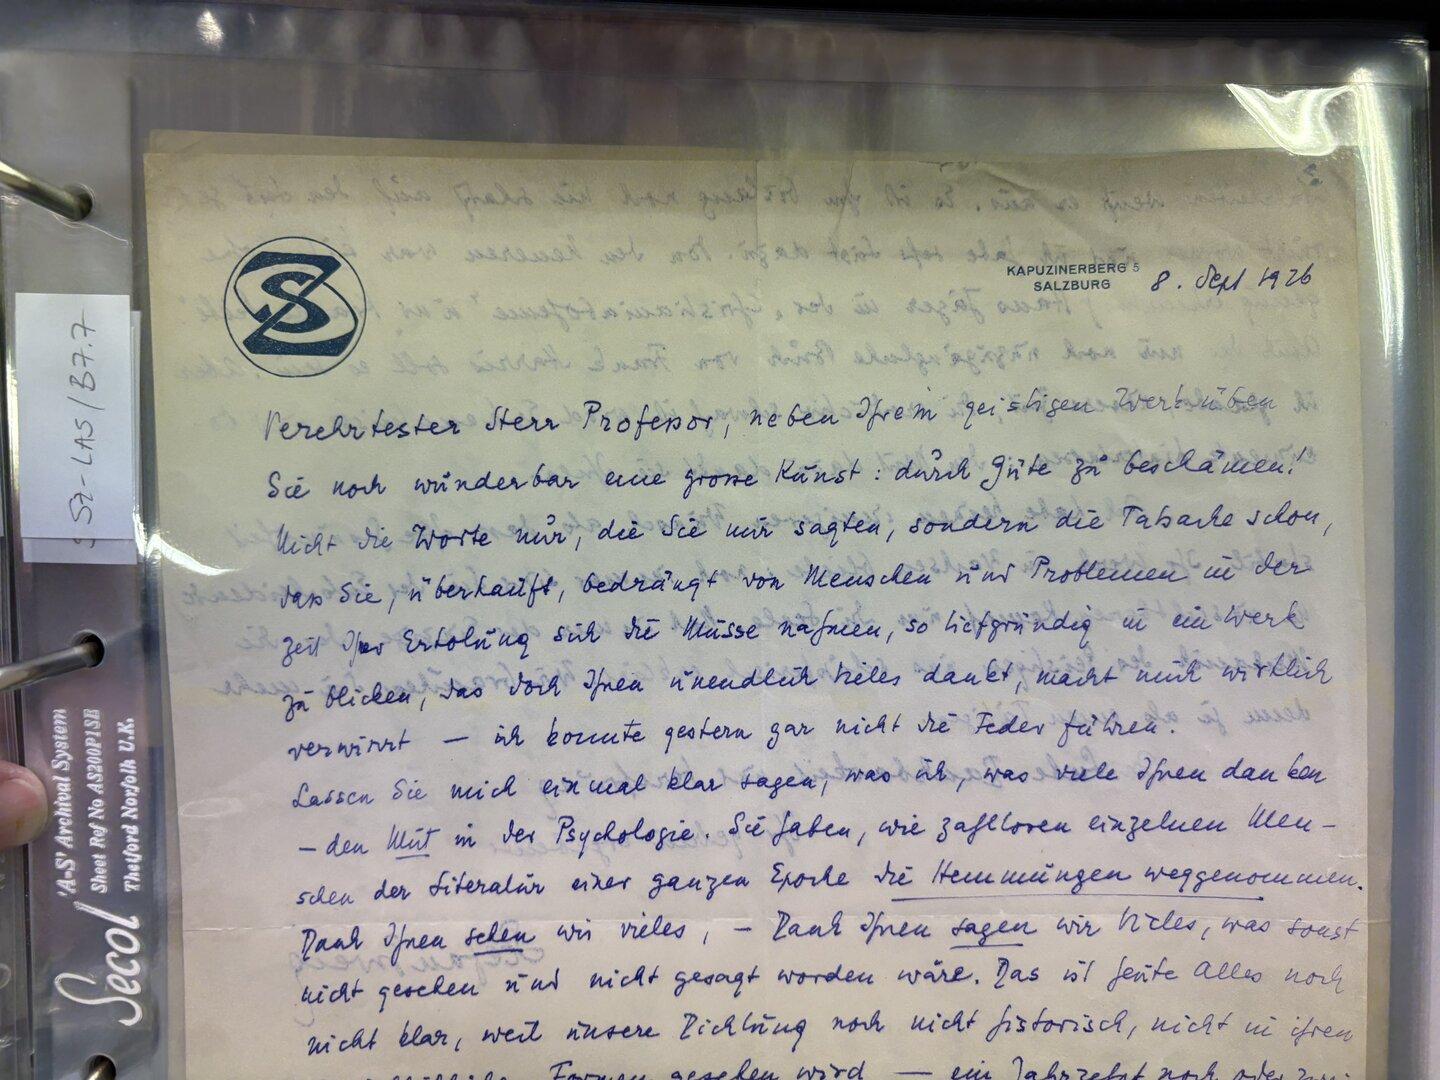 SZ
KAPUZINERBERG 5
SALZBURG
8. Sept 1926
Verehrtester Herr Professor, neben Ihrem geistigen Werk üben
Sie noch wunderbar eine grosse Kunst: durch Güte zu beschämen!
Nicht die Worte nur, die Sie mir sagten, sondern die Tatsache schon,
dass Sie, überhäuft, bedrängt von Menschen und Problemen in der
Zeit Ihrer Erholung sich die Musse nahmen, so tiefgründig in ein Werk
zu blicken, das doch Ihnen unendlich vieles dankt, macht mich wirklich
verwirrt — ich konnte gestern gar nicht die Feder führen.
Lassen Sie mich einmal klar sagen, was ich, was viele Ihnen danken
— den Mut in der Psychologie. Sie haben, wie zahllosen einzelnen Men-
schen der Literatur einer ganzen Epoche die Hemmungen weggenommen.
Dank Ihnen sehen wir vieles, — Dank Ihnen sagen wir Vieles, was sonst
nicht gesehen und nicht gesagt worden wäre. Das ist heute Alles noch
nicht klar, weil unsere Dichtung noch nicht historisch, nicht in ihren
Formen gesehen wird — ein Jahrzehnt noch oder zwei
SZ-LAS/B7.7
Secol
'A-S' Archival System
Sheet Ref No AS200P1SB
Thetford Norfolk U.K.